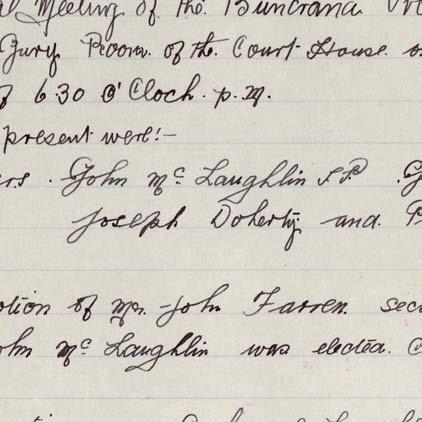 al Meeting of the Buncrana
Jury Room of the Court House
of 6.30 O'Clock. p.m.
present were:-
ers. John Mc Laughlin J.P.
Joseph Doherty and
otion of Mr. John Farren. sec
ohn Mc Laughlin was elected.